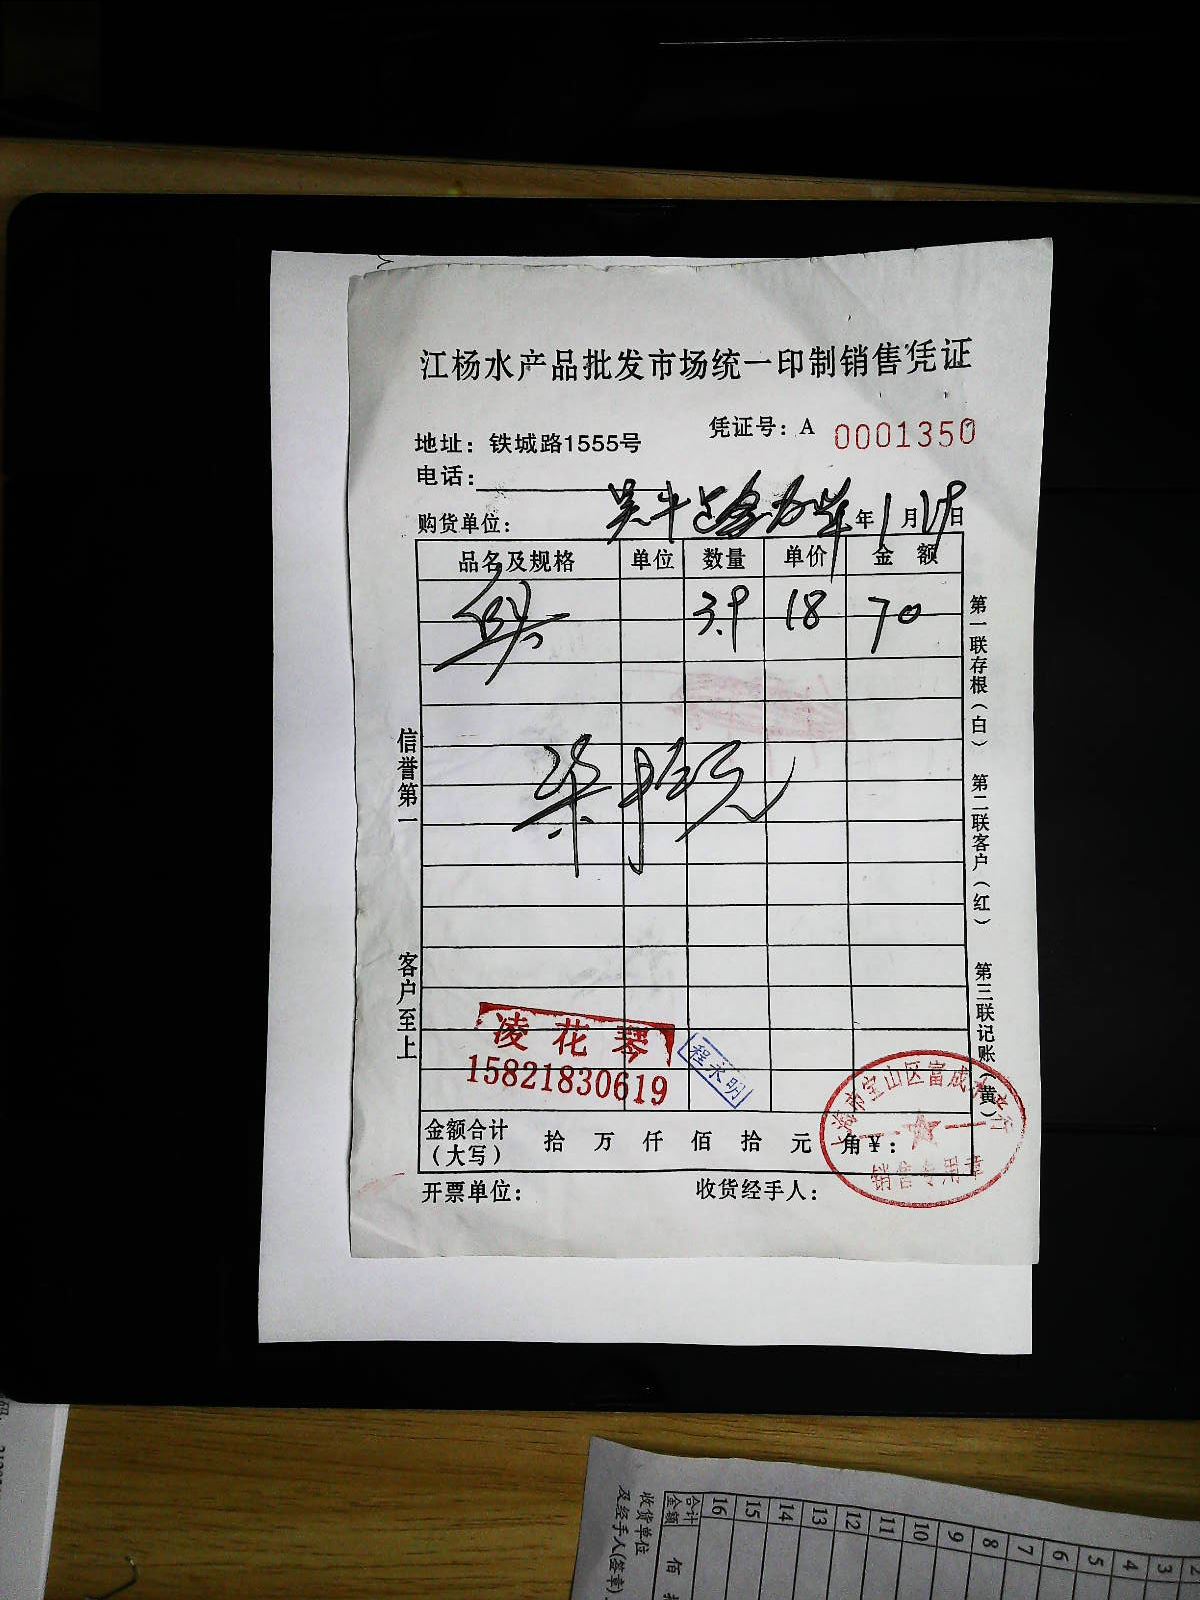 江杨水产品批发市场统一印制销售凭证
地址：铁城路1555号
凭证号：A 0001350
电话：
购货单位：
年1月19日
品名及规格 单位 数量 单价 金 额
3.9 18 70
柒拾元
信誉第一
客户至上
第一联存根（白）
第二联客户（红）
第三联记账（黄）
凌花琴
15821830619
程永明
上海市宝山区富成水产行
销售专用章
金额合计
（大写）
拾 万 仟 佰 拾 元 角￥：
开票单位：
收货经手人：
收货单位
及经手人(签章)
合计
金额
佰
16
15
14
13
12
11
10
9
8
7
6
5
4
3
2